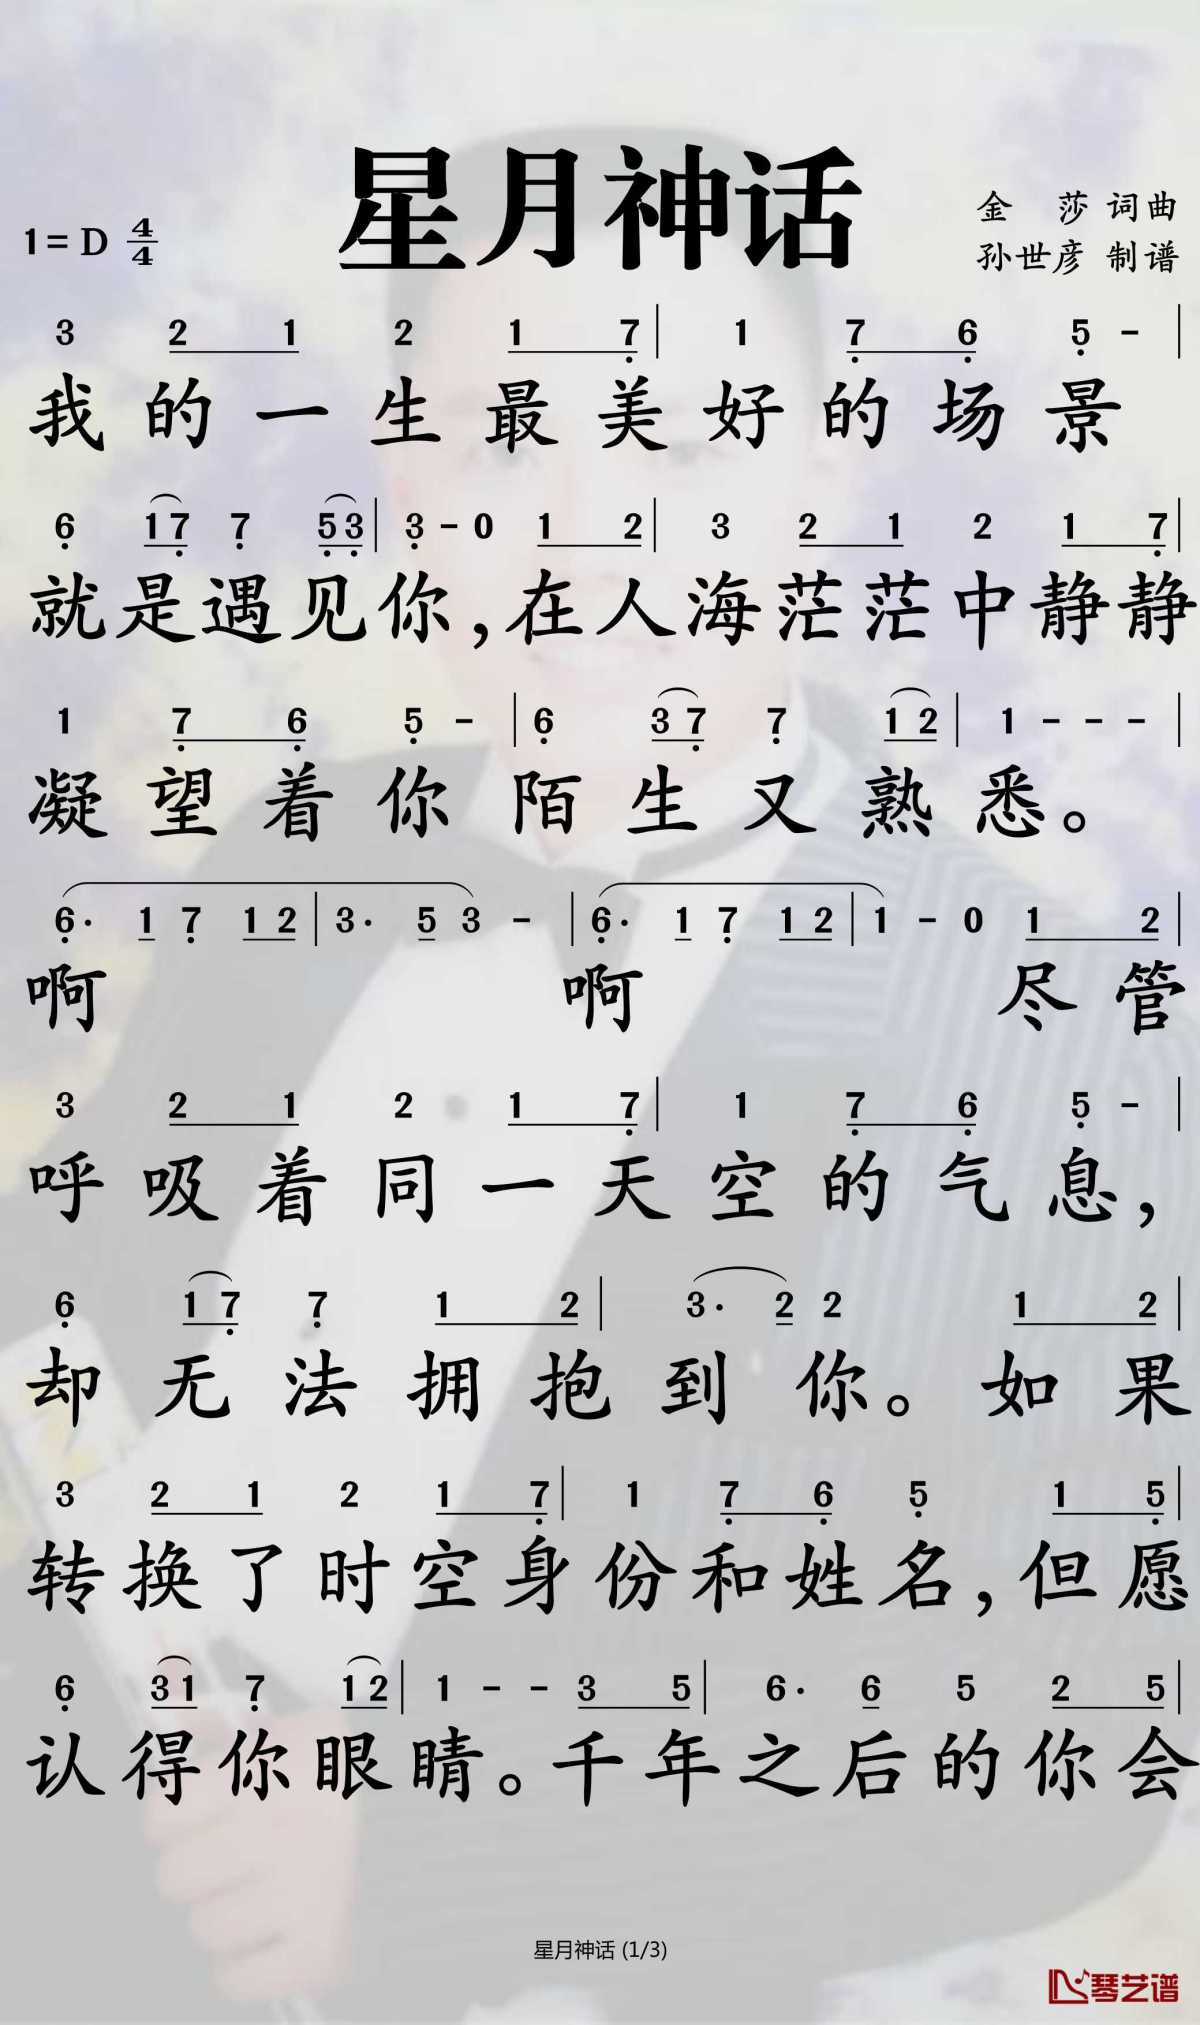 星月神话
1=D 4/4
金 莎 词曲
孙世彦 制谱
3 2 1 2 1 7 | 1 7 6 5 - |
我的一生最美好的场景
6 1 7 7 5 3 | 3 - 0 1 2 | 3 2 1 2 1 7 |
就是遇见你,在人海茫茫中静静
1 7 6 5 - | 6 3 7 7 1 2 | 1 - - - |
凝望着你陌生又熟悉。
6· 1 7 1 2 | 3· 5 3 - | 6· 1 7 1 2 | 1 - 0 1 2 |
啊 啊 尽管
3 2 1 2 1 7 | 1 7 6 5 - |
呼吸着同一天空的气息,
6 1 7 7 1 2 | 3· 2 2 1 2 |
却无法拥抱到你。如果
3 2 1 2 1 7 | 1 7 6 5 1 5 |
转换了时空身份和姓名,但愿
6 3 1 7 1 2 | 1 - - 3 5 | 6· 6 5 2 5 |
认得你眼睛。千年之后的你会
星月神话 (1/3)
琴艺谱